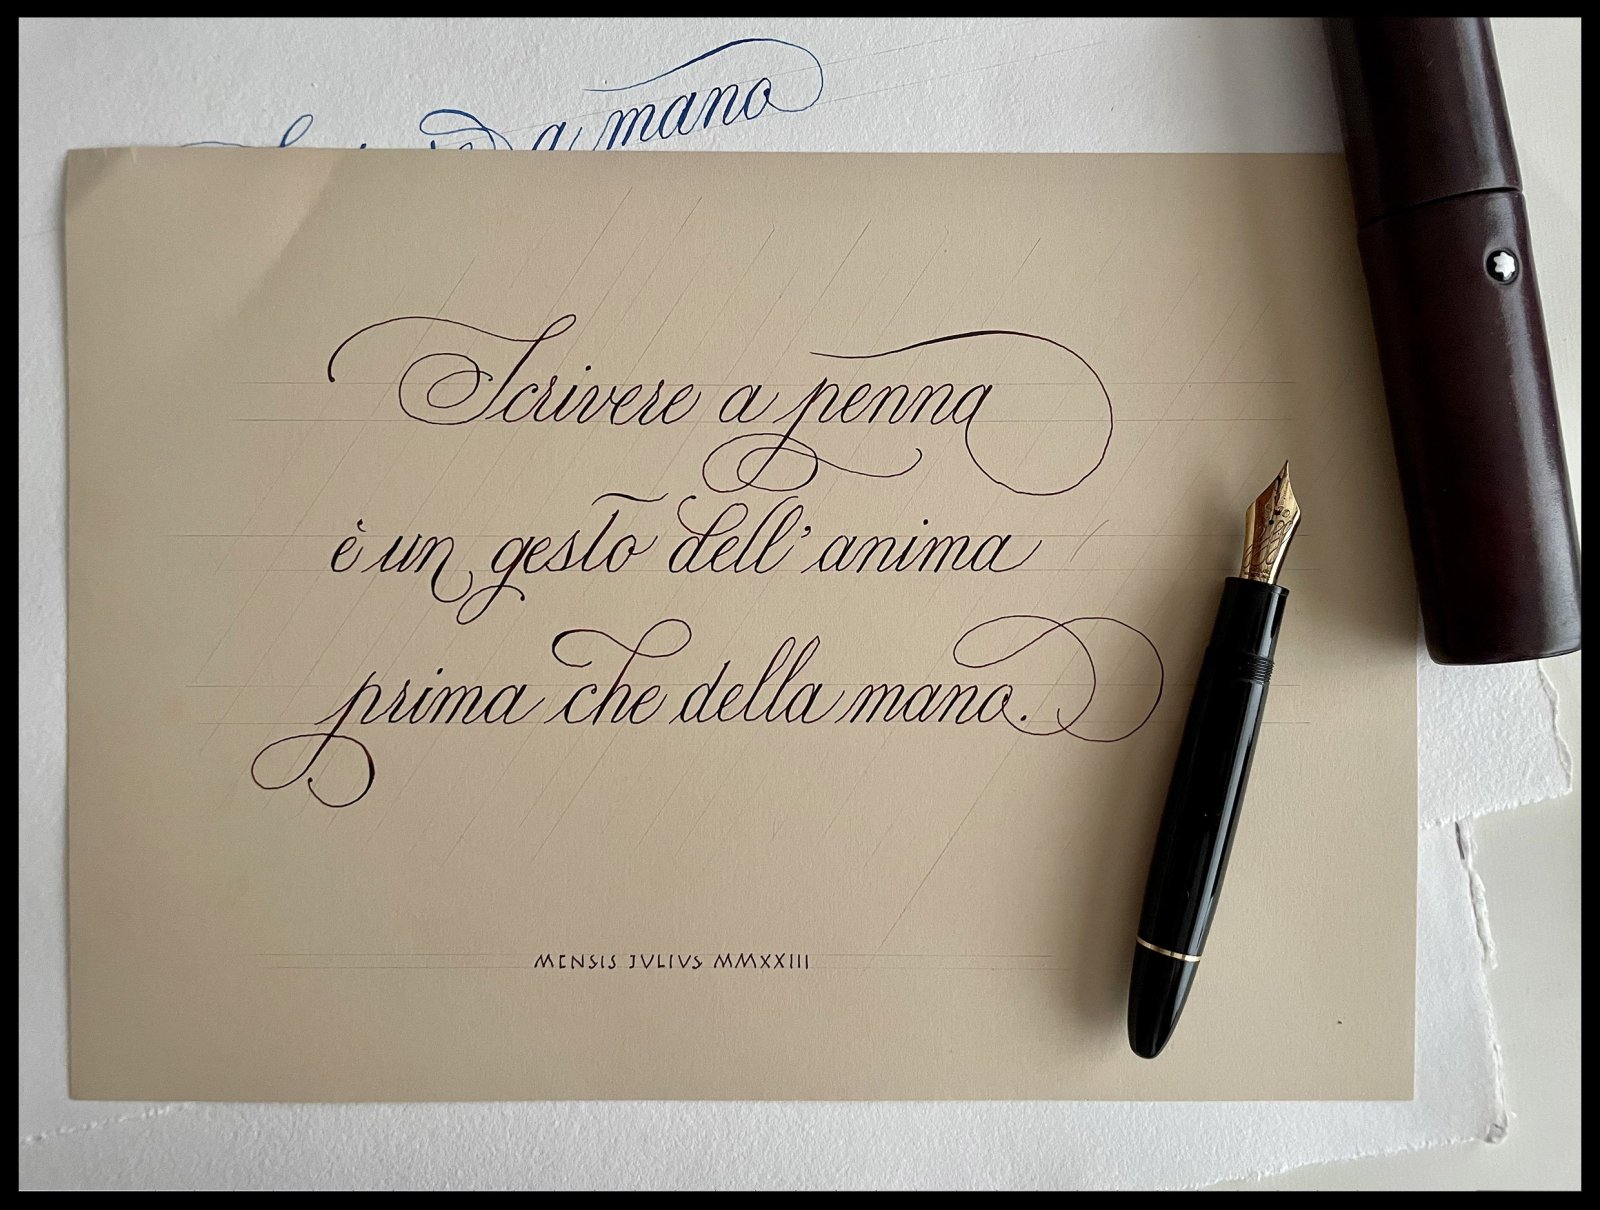 a mano
Scrivere a penna
è un gesto dell'anima
prima che della mano.
MENSIS JVLIVS MMXXIII